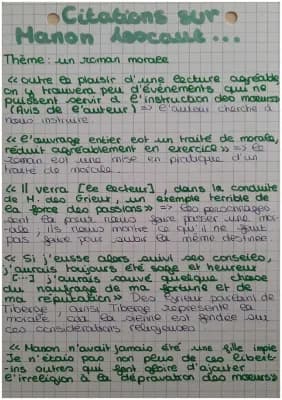 Citations sur
Manon Lescaut...
Thème : un roman morale
« Outre le plaisir d'une lecture agréable,
on y trouvera peu d'événements, qui ne
puissent servir à l'instruction des mœurs»
(Avis de l'auteur) => l'auteur cherche à
nous instruire
« L'ouvrage entier est un traité de morale,
réduit agréablement en exercice» => le
roman est une mise en pratique d'un
traité de morale.
« Il verra [le lecteur], dans la conduite
de M. des Grieux, un exemple terrible de
la force des passions» => les personnages
sont là pour nous faire passer une mo-
-rale, ils nous montre ce qu'il ne faut
pas faire pour subir la même destinée
« Si j'eusse alors suivi ses conseils,
j'aurais toujours été sage et heureux
[...] j'aurais sauvé quelque chose
du naufrage de ma fortune et de
ma réputation» Des Grieux parlant de
Tiberge, ainsi Tiberge représente la
morale, car la sienne est fondée sur
ces considérations religieuses
« Manon n'avait jamais été une fille impie
Je n'étais pas non plus de ces libert-
-ins outrés qui font gloire d'ajouter
l'irréligion à la dépravation des mœurs»